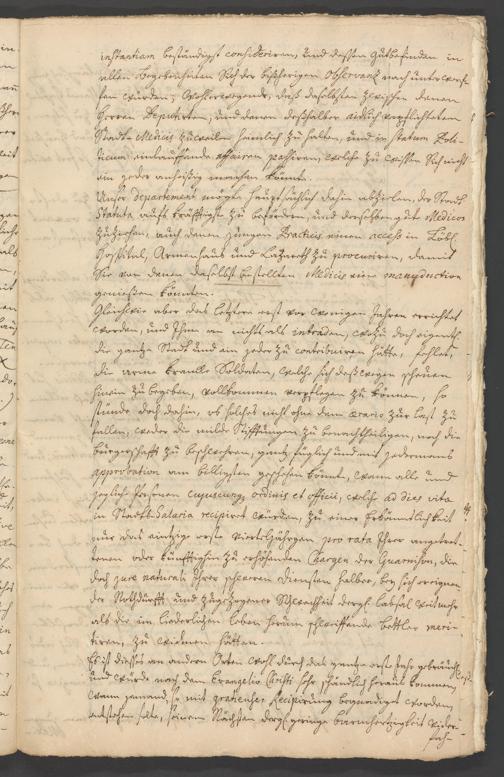 instantiam beständigst consideriren, und dessen Gutbefinden in
allen Begebenheiten sich der bißherigen Observanz nach unterwerf-
fen würden; daß dasselbsten zwischen denen
Herren Deputirten, und denen deßhalber aidlich verpflichteten
Stadt-Medicis zuweilen heimlich zu halten, und in statum Poli-
ticum einlauffende affairen passiren, welche zu wissen sich nicht
ein jeder anheischig machen könnte.
Unser departement möchte hauptsächlich dahin abzielen, der Stadt
Statuta aufs kräfftigste zu befördern, und derselben gute Medicos
zuziehen, auch denen jungen Practicis einen access in Löbl.
Hospital, Armenhaus und Lazareth zu procuriren, damit
Sie von denen daselbst bestellten Medicis eine manuduction
geniessen könnten.
Gleichwie aber das letztere erst vor wenigen Jahren errichtet
worden, und Ihm an nichts als intraden, wozu doch eigentl.
die gantze Stadt und ein jeder zu contribuiren hätte, fehlet,
die arme krancke Soldaten, welche sich deßwegen scheuen
hinein zu begeben, vollkommen verpflegen zu können, so
stünde doch dahin, ob solches nicht ohne dem aerario zur last zu
fallen, weder die milde Stifftungen zu benachtheiligen, noch die
bürgerschafft zu beschwehren, gantz füglich und mit jedermans
approbation am billigsten geschehen könnte, wann alle und
jegliche Personen cujuscunq ordinis et officii, welche ad dies vitae
in Stadt-Salaria recipiret würden, zu einer Erkänntlichkeit
nur das eintzige erste vierteljährgen pro rata Ihrer angetret-
tenen oder künfftighin zu erhöhenden Chargen der Guarnison, die
doch jure naturali Ihrer schweren diensten halber, bey sich ereignen
der Nothdurfft und zugezogener Schwachheit dergl. labsal vielmehr
als die im liederlichen leben herum schweiffende bettler meri-
tiren, zu widmen hätten.
Es ist dieses an andern Orten wohl durch das gantze erste Jahr gebräuchlich,
und würde nach dem Evangelio Christi sehr schändlich heraus kommen,
wann jemand, so mit gratieuser Recipirung begnadiget worden,
anstehen solte, seinem Nächsten dergl. geringe barmhertzigkeit wider-
fah-